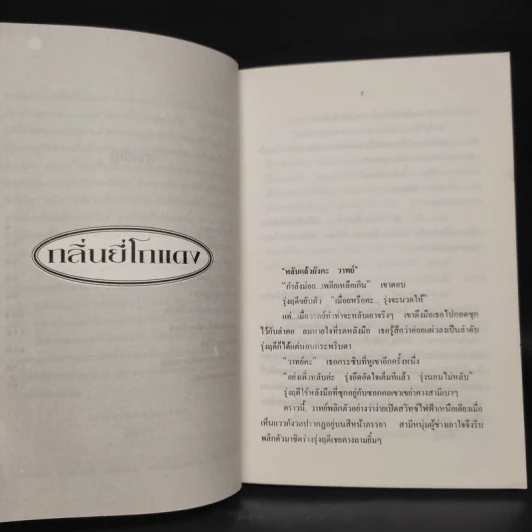 กลิ่นยี่โถแดง
๑
"หลับแล้วยังคะ วาทย์"
"กำลังม่อย...เพลียเหลือเกิน" เขาตอบ
รุ่งฤดีขยับตัว "เมื่อยหรือคะ... รุ่งจะนวดให้"
แต่...เมื่อวาทย์ทำท่าจะหลับเอาจริงๆ เขาดึงมือเธอไปกอดซุก
ไว้กับลำคอ ลมหายใจที่รดหลังมือ เธอรู้สึกว่าค่อยแผ่วลงเป็นลำดับ
รุ่งฤดีก็ได้แต่นอนกระพริบตา
"วาทย์คะ" เธอกระซิบที่หูเขาอีกครั้งหนึ่ง
"อย่าเพิ่งหลับค่ะ รุ่งอึดอัดใจเต็มทีแล้ว รุ่งนอนไม่หลับ"
รุ่งฤดีใช้หลังมือที่ซุกอยู่กับซอกคอเขาเขย่าคางสามีเบาๆ
คราวนี้ วาทย์พลิกตัวอย่างว่าง่ายเปิดสวิทช์ไฟฟ้าเหนือเตียงเมื่อ
เห็นแววกังวลปรากฏอยู่บนสีหน้าภรรยา สามีหนุ่มผู้ช่างเอาใจจึงรีบ
พลิกตัวมาชิดร่างรุ่งฤดีเชยคางถามยิ้มๆ